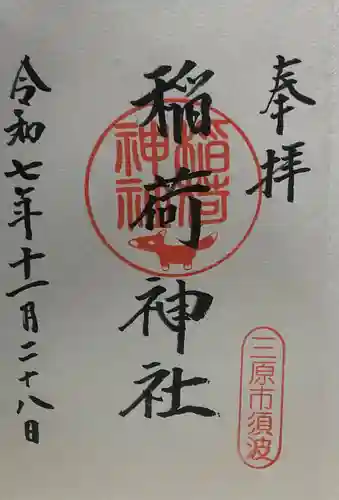 奉拝
稲荷神社
稲荷
神社
令和七年十一月二十八日
三原市須波